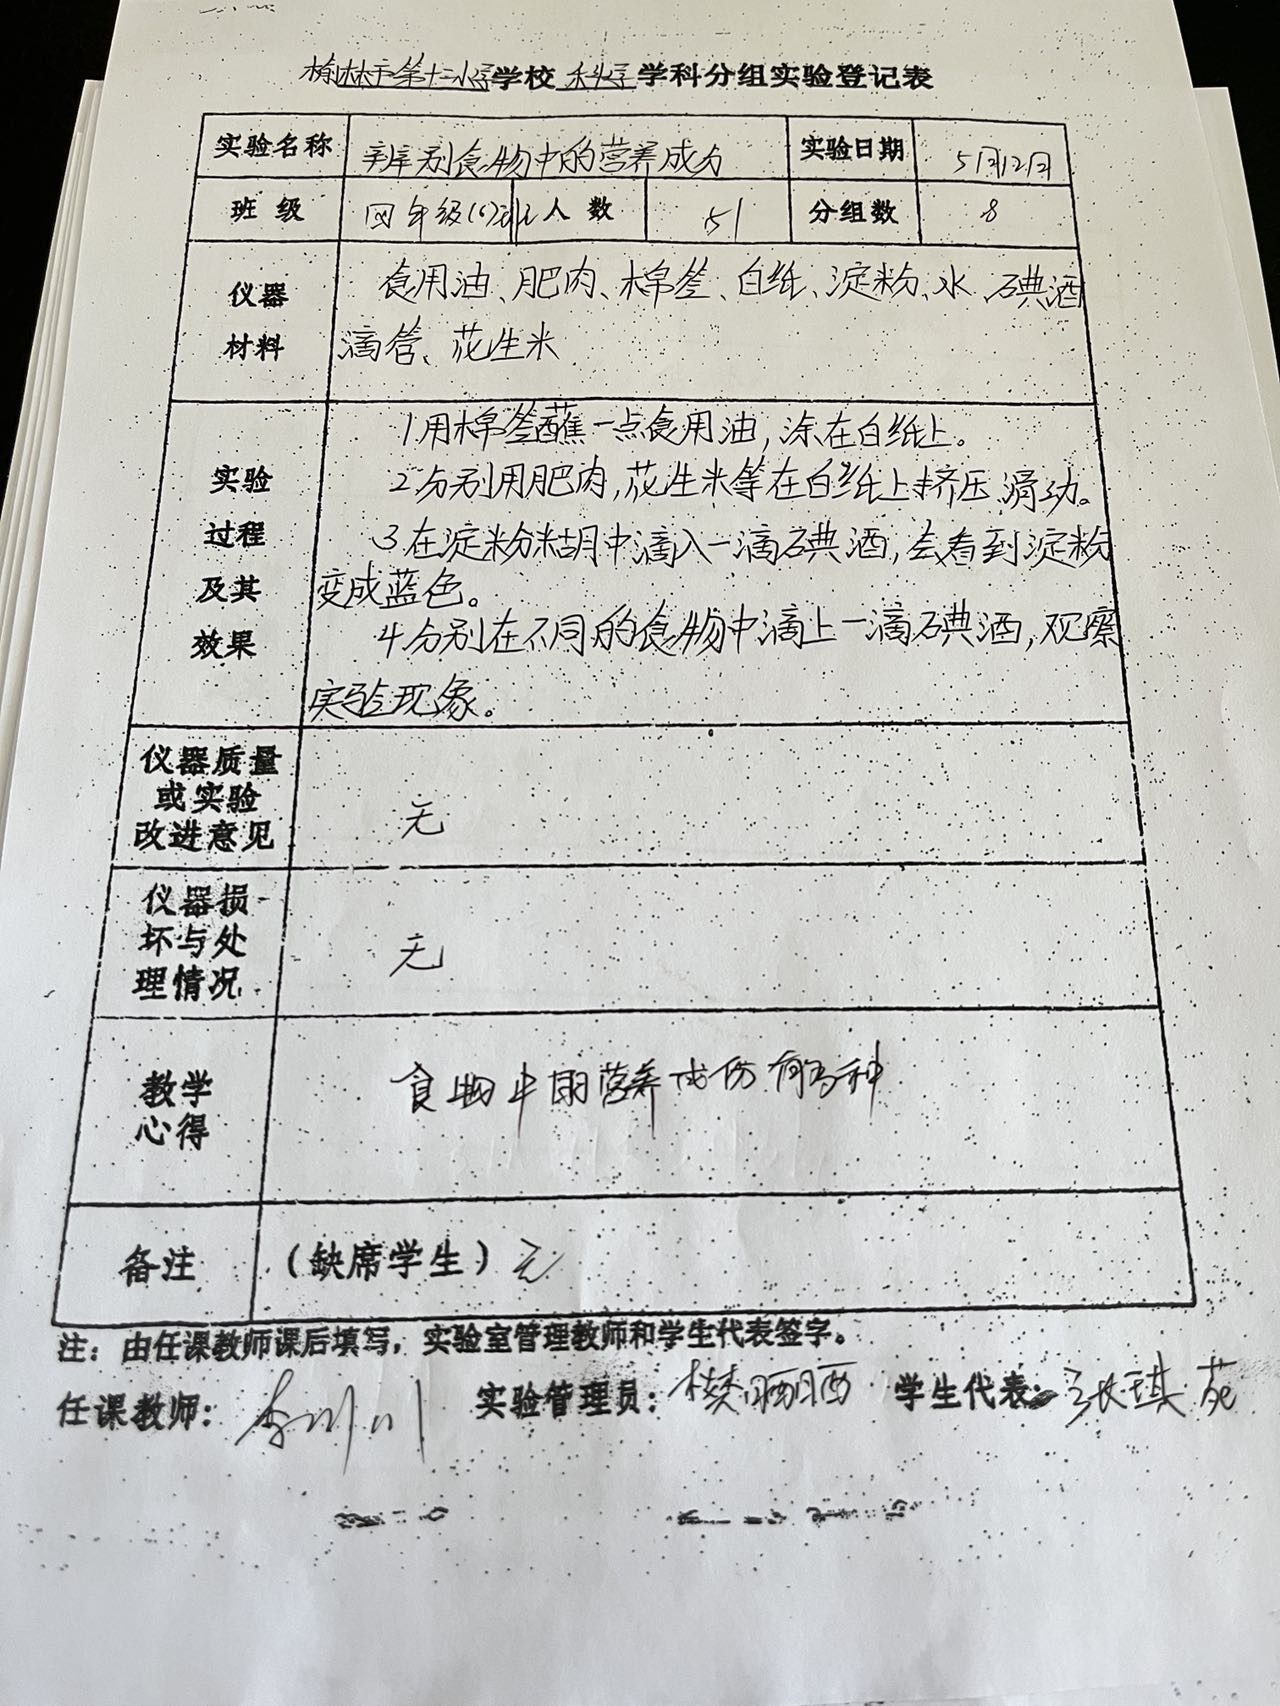 榆林市第十二小学学校 科学 学科分组实验登记表
实验名称 辨别食物中的营养成分 实验日期 5月12日
班 级 四年级(6)班 人 数 51 分组数 8
仪器 食用油、肥肉、棉签、白纸、淀粉、水、碘酒
材料 滴管、花生米
1.用棉签蘸一点食用油,涂在白纸上。
实验 2.分别用肥肉,花生米等在白纸上挤压、滑动。
过程 3.在淀粉糊中滴入一滴碘酒,会看到淀粉
及其 变成蓝色。
效果 4.分别在不同的食物中滴上一滴碘酒,观察
实验现象。
仪器质量
或实验
改进意见 无
仪器损
坏与处 无
理情况
教学 食物中的营养成份有多种
心得
备注 (缺席学生) 无
注:由任课教师课后填写,实验室管理教师和学生代表签字。
任课教师: 实验管理员: 樊丽丽 学生代表: 张琪苑